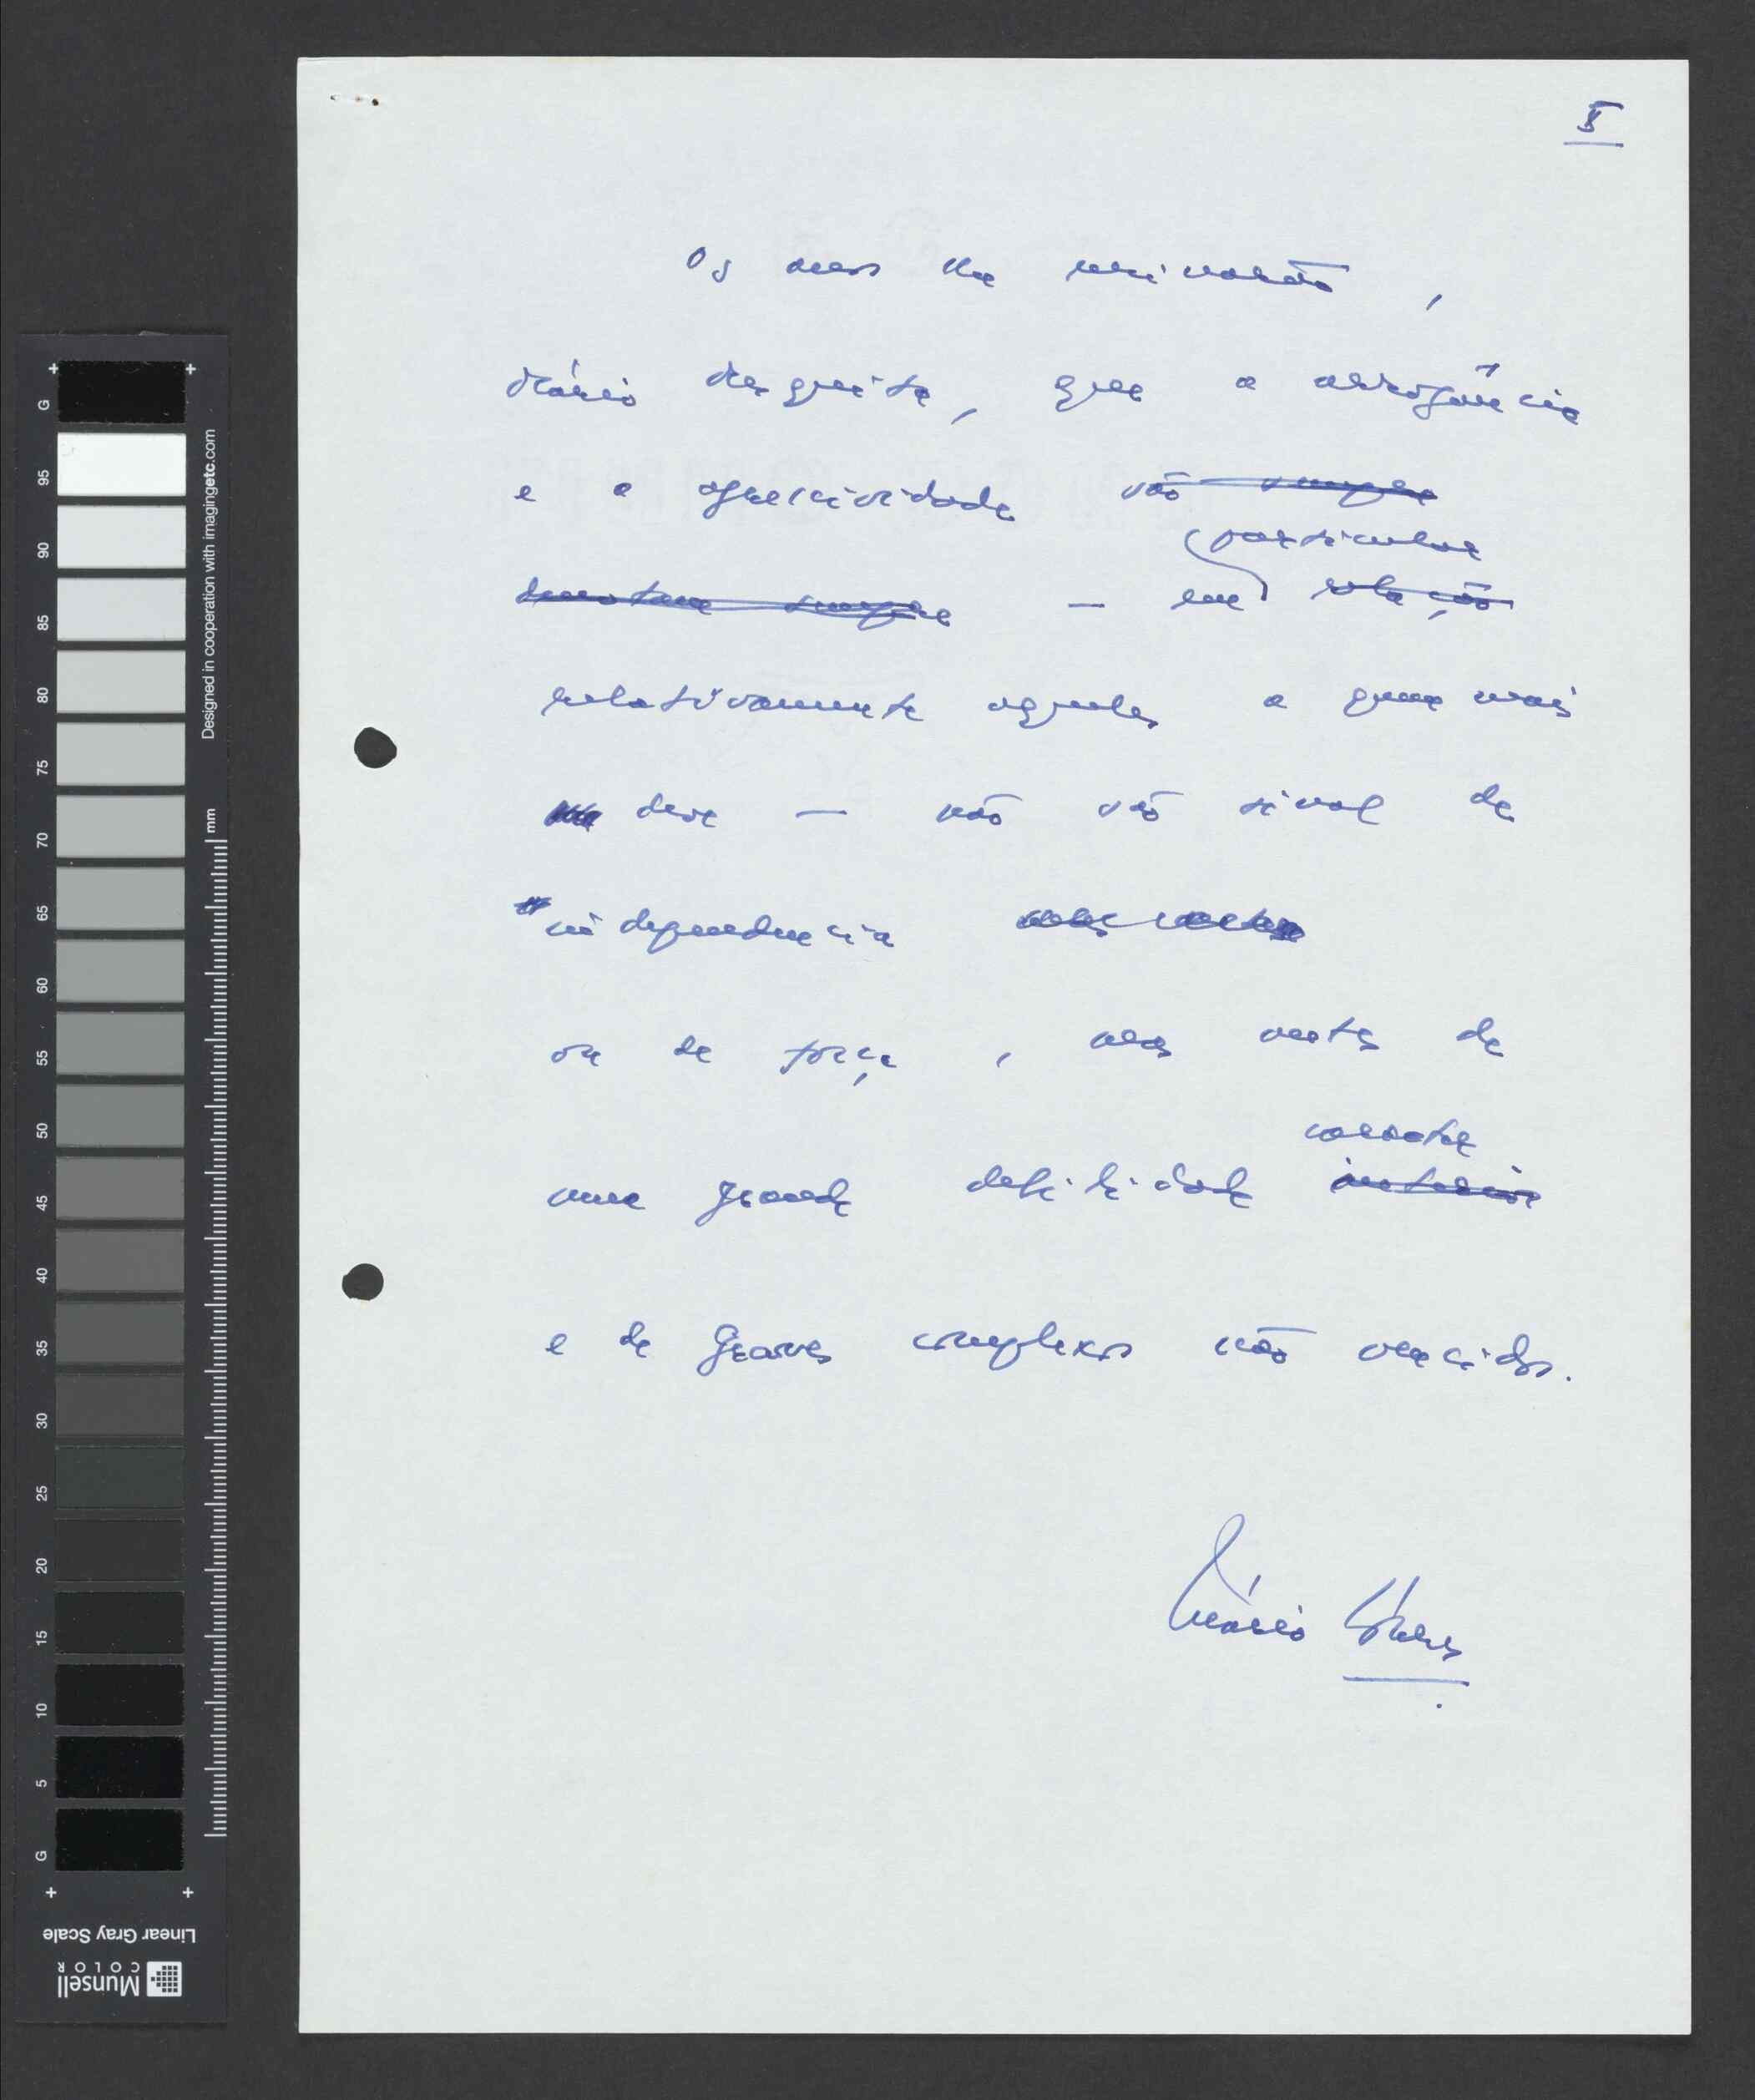 5
Os anos lhe ensinarão,
Mário Mesquita, que a arrogância
e a agressividade são sempre
particular
denotam sempre — em relação
relativamente aqueles a quem mais
deve — não são sinal de
independência
ou de força, mas antes de
carácter
uma grande debilidade interior
e de graves complexos não vencidos.
Mário Soares
G
95
90
85
80
75
70
65
60
55
50
45
40
35
30
25
20
15
10
5
G
Designed in cooperation with imagingetc.com
mm
Linear Gray Scale
Munsell
COLOR